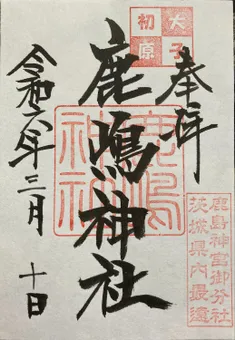 大子
初原
奉拝
鹿嶋神社
令和六年三月
十日
鹿島
神社
鹿島神宮御分社
茨城県内最遠